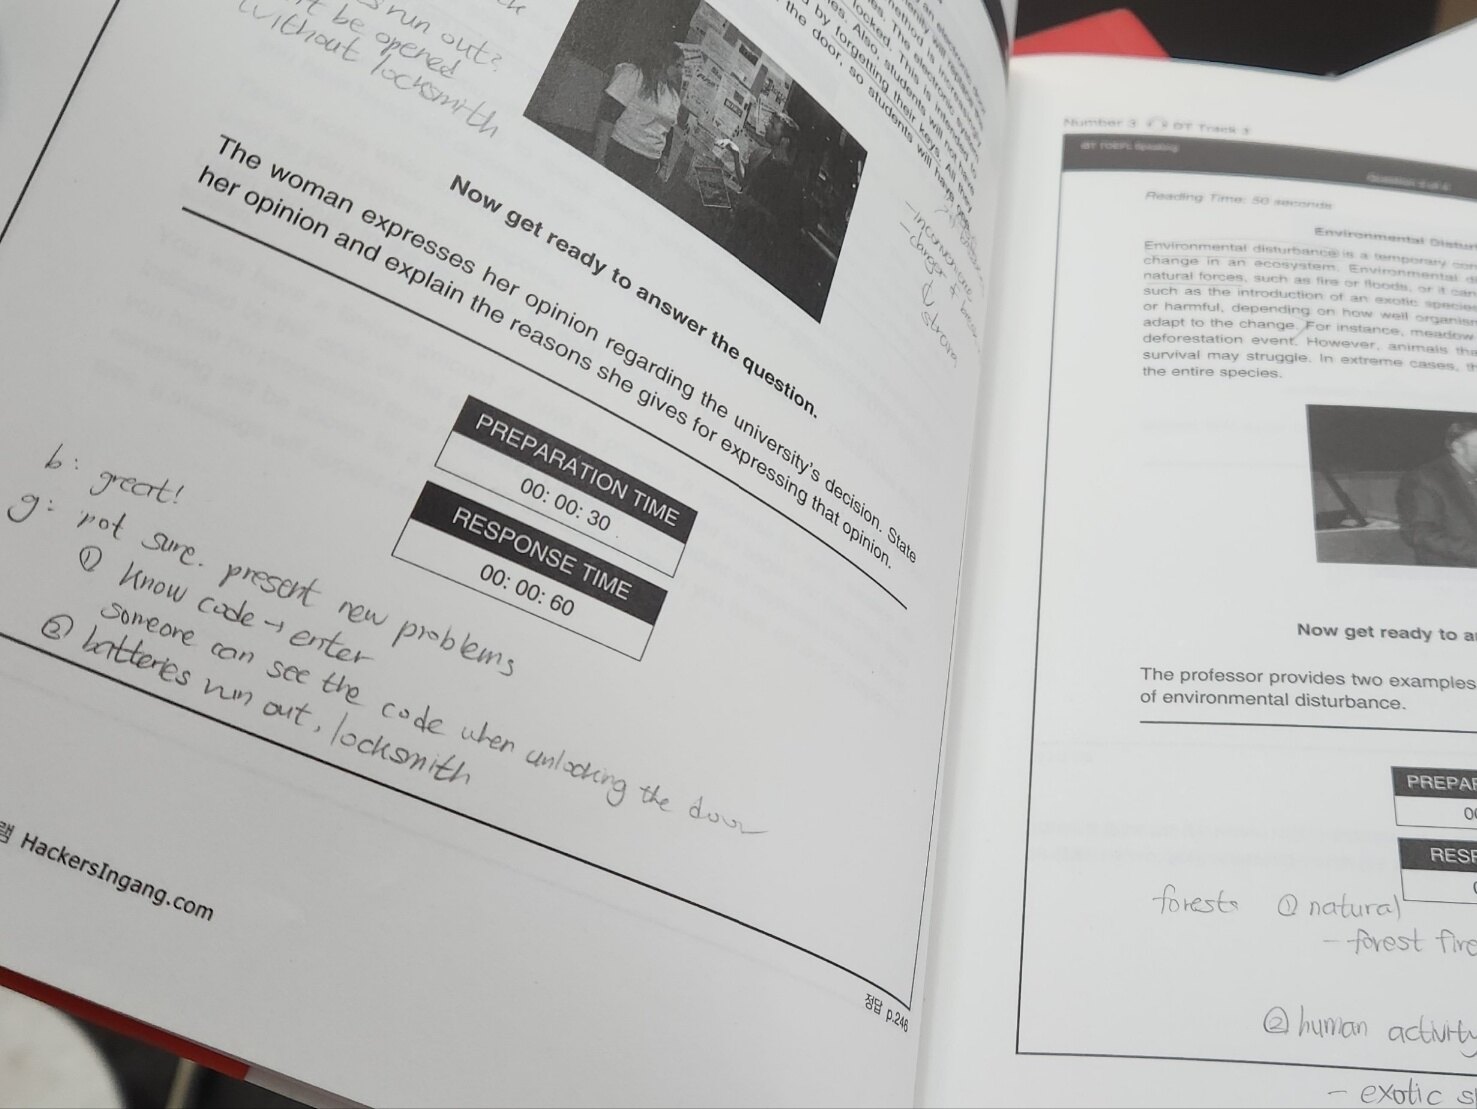 run out?
be opened
without locksmith
an electronic
locked. This is intended to
by forgetting their keys. All they
door, so students will have
- inconvenience
- danger
↓
strong
Now get ready to answer the question.
The woman expresses her opinion regarding the university's decision. State
her opinion and explain the reasons she gives for expressing that opinion.
PREPARATION TIME
00: 00: 30
RESPONSE TIME
00: 00: 60
b: great!
g: not sure. present new problems
① know code → enter
someone can see the code when unlocking the door
② batteries run out, locksmith
HackersIngang.com
정답 p.246
Number 3 DT Track 3
iBT TOEFL Speaking
Reading Time: 50 seconds
Environmental
Environmental disturbance is a temporary
change in an ecosystem. Environmental
natural forces, such as fire or floods, or it can
such as the introduction of an exotic species
or harmful, depending on how well
adapt to the change. For instance, meadow
deforestation event. However, animals
survival may struggle. In extreme cases,
the entire species.
Now get ready to
The professor provides two examples
of environmental disturbance.
forests ① natural
- forest fire
② human activity
- exotic